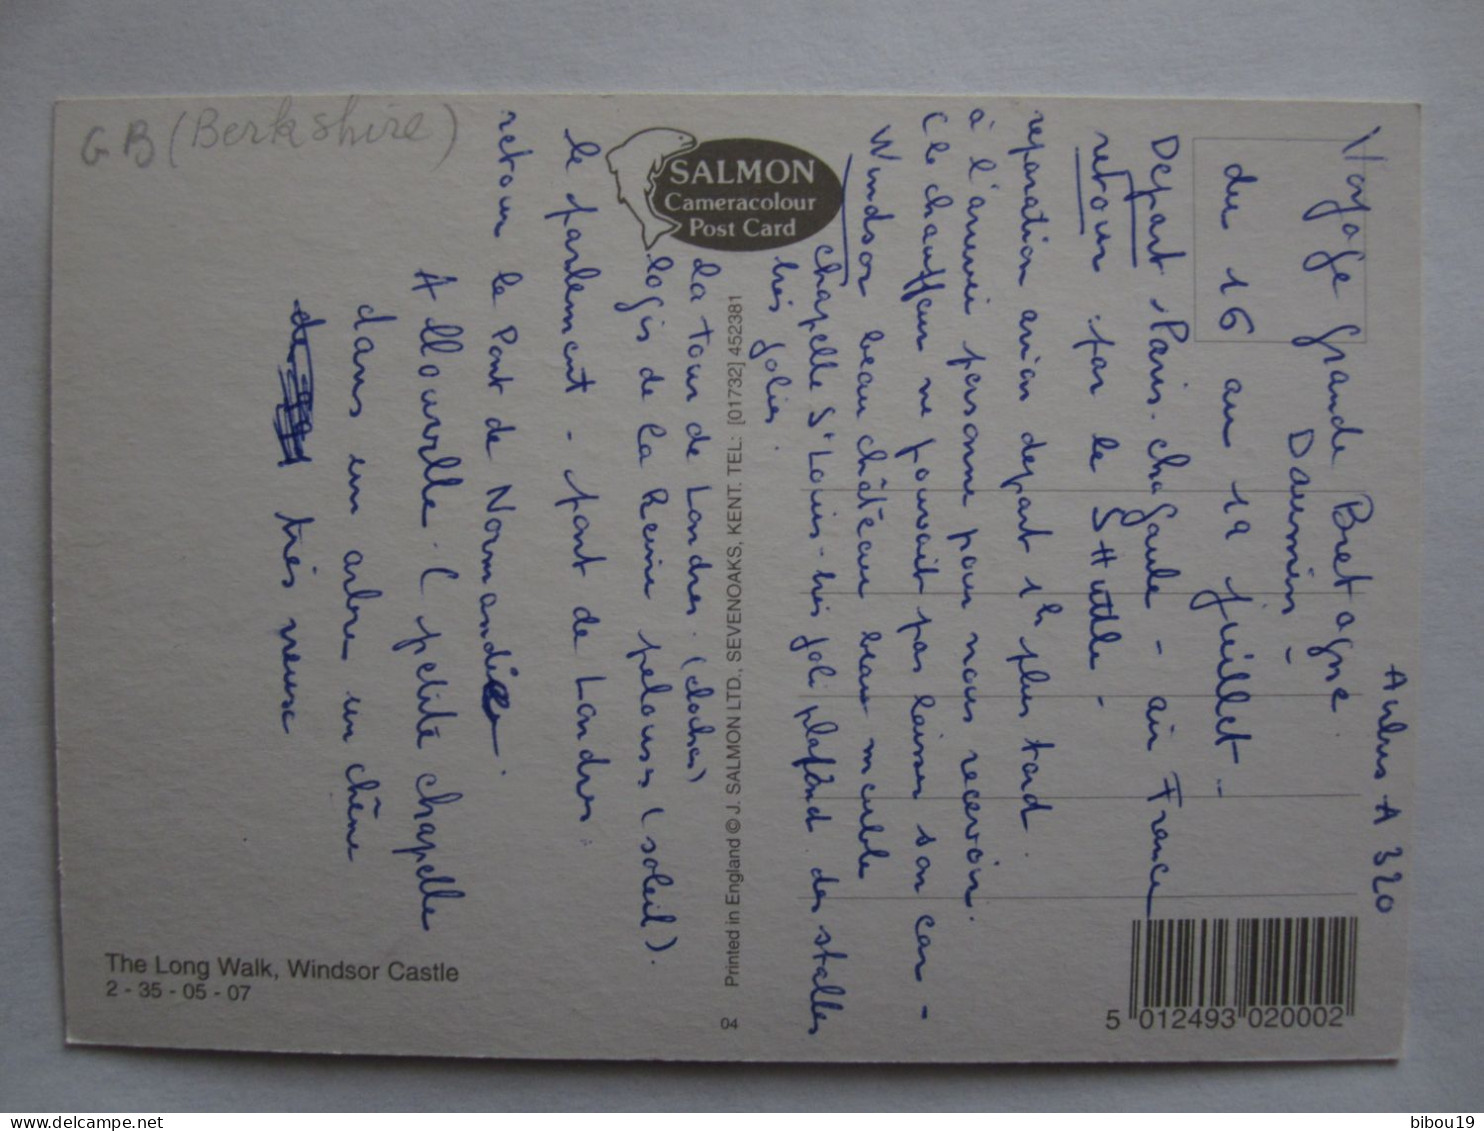 GB (Berkshire)
SALMON
Cameracolour
Post Card
Airbus A 320
Voyage Grande Bretagne
du 16 au 19 juillet -
Départ Paris. ch de Gaule - air France
retour par le SHuttle -
reparation avion depart 1h plus tard
à l'arrivée personne pour nous recevoir.
(le chauffeur ne pouvait pas laisser son car -
Windsor beau château beau meuble
chapelle St Louis - très joli plafond des stalles
très jolies.
La Tour de Londres. (dochas)
logis de la Reine pelouses (soleil).
le parlement - pont de Londres.
retour le Pont de Normandie.
Allouville. (petite chapelle
dans un arbre un chêne
très vieux
Printed in England © J. SALMON LTD., SEVENOAKS, KENT. TEL: [01732] 452381
04
The Long Walk, Windsor Castle
2 - 35 - 05 - 07
5 012493 020002
bibou19